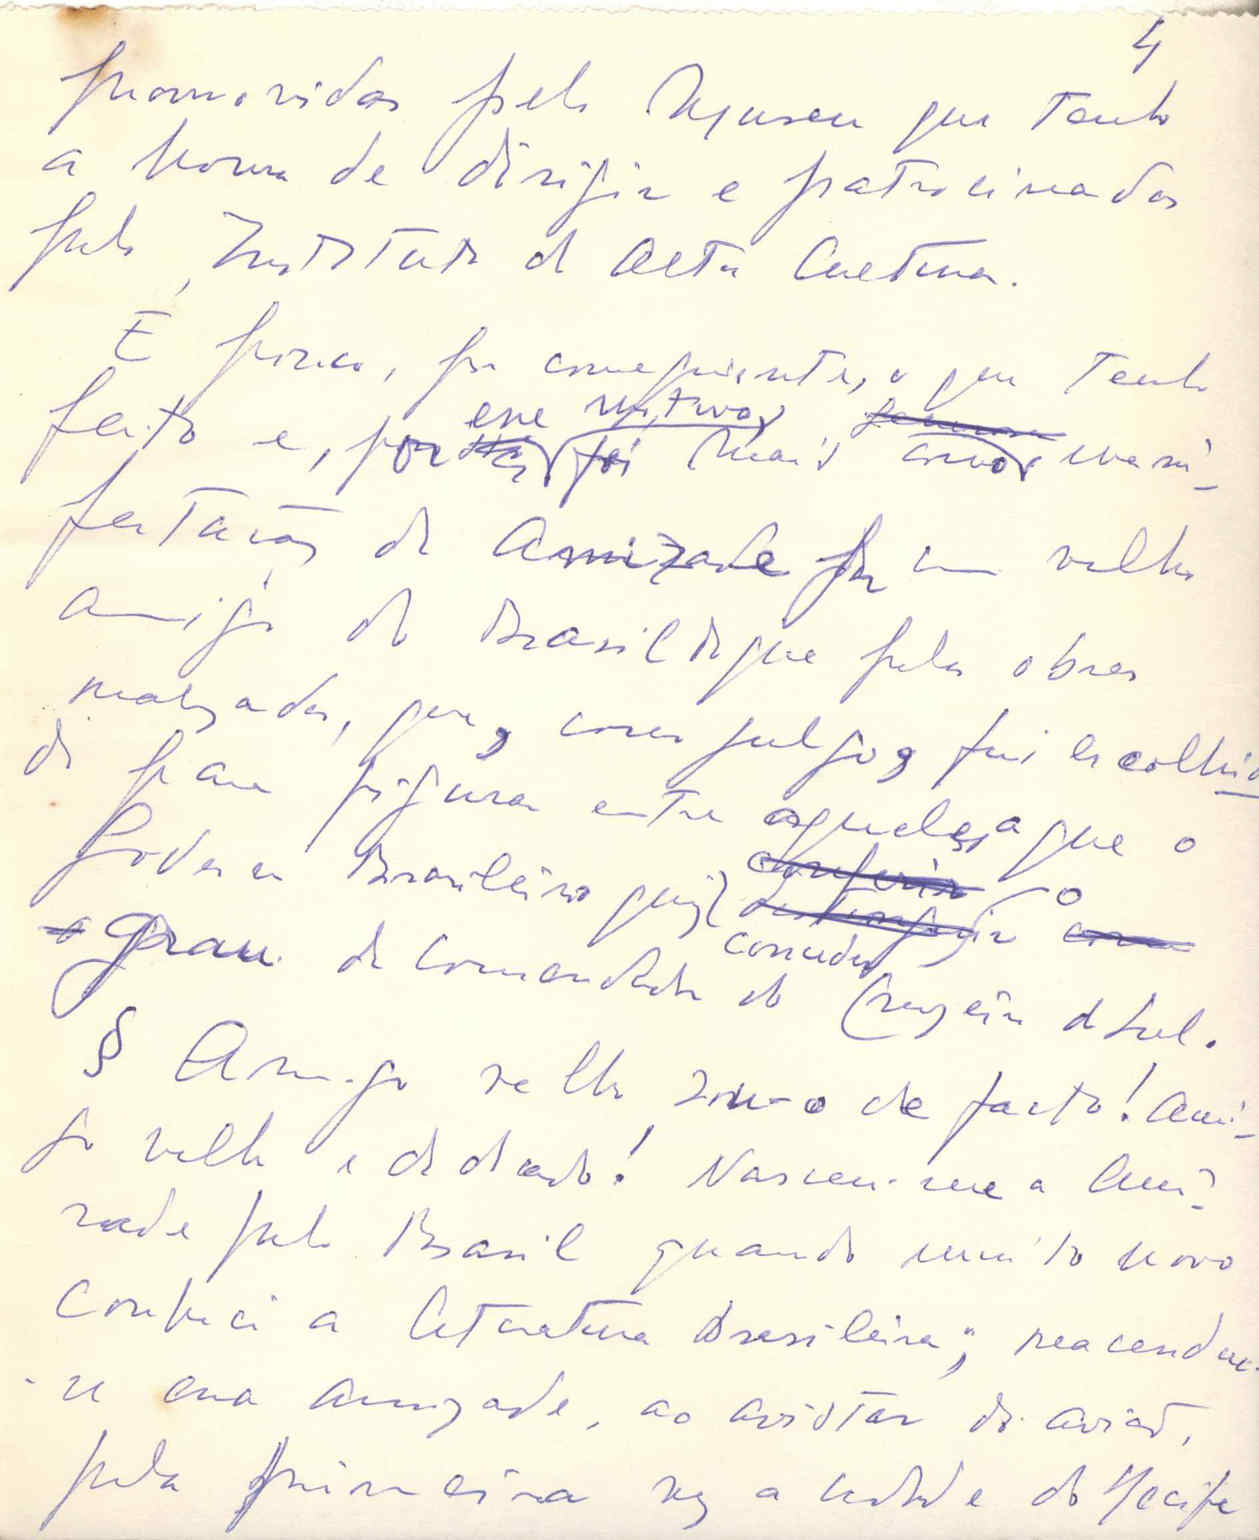 4
promovidas pelo Museu que tenho
a honra de dirigir e patrocinados
pelo Instituto de Alta Cultura.
É pouco, por conseguinte, o que tenho
feito e, por esse motivo, foi mais como mani-
festação de Amizade por um velho
amigo do Brasil do que pelas obras
realizadas, que, como julgo, fui escolhi-
do para figurar entre aqueles a que o
Governo Brasileiro quiz conceder o
grau de comendador do Cruzeiro do Sul.
§ Amigo velho sou-o de facto! Ami-
go velho e dedicado! Nasceu-me a Ami-
zade pelo Brasil quando muito novo
conheci a literatura brasileira; reacendeu-
-se essa amizade, ao avistar do avião,
pela primeira vez a cidade do Recife